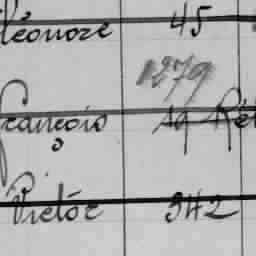 Léonore 45
1279
François 19 Ré
Victor 342